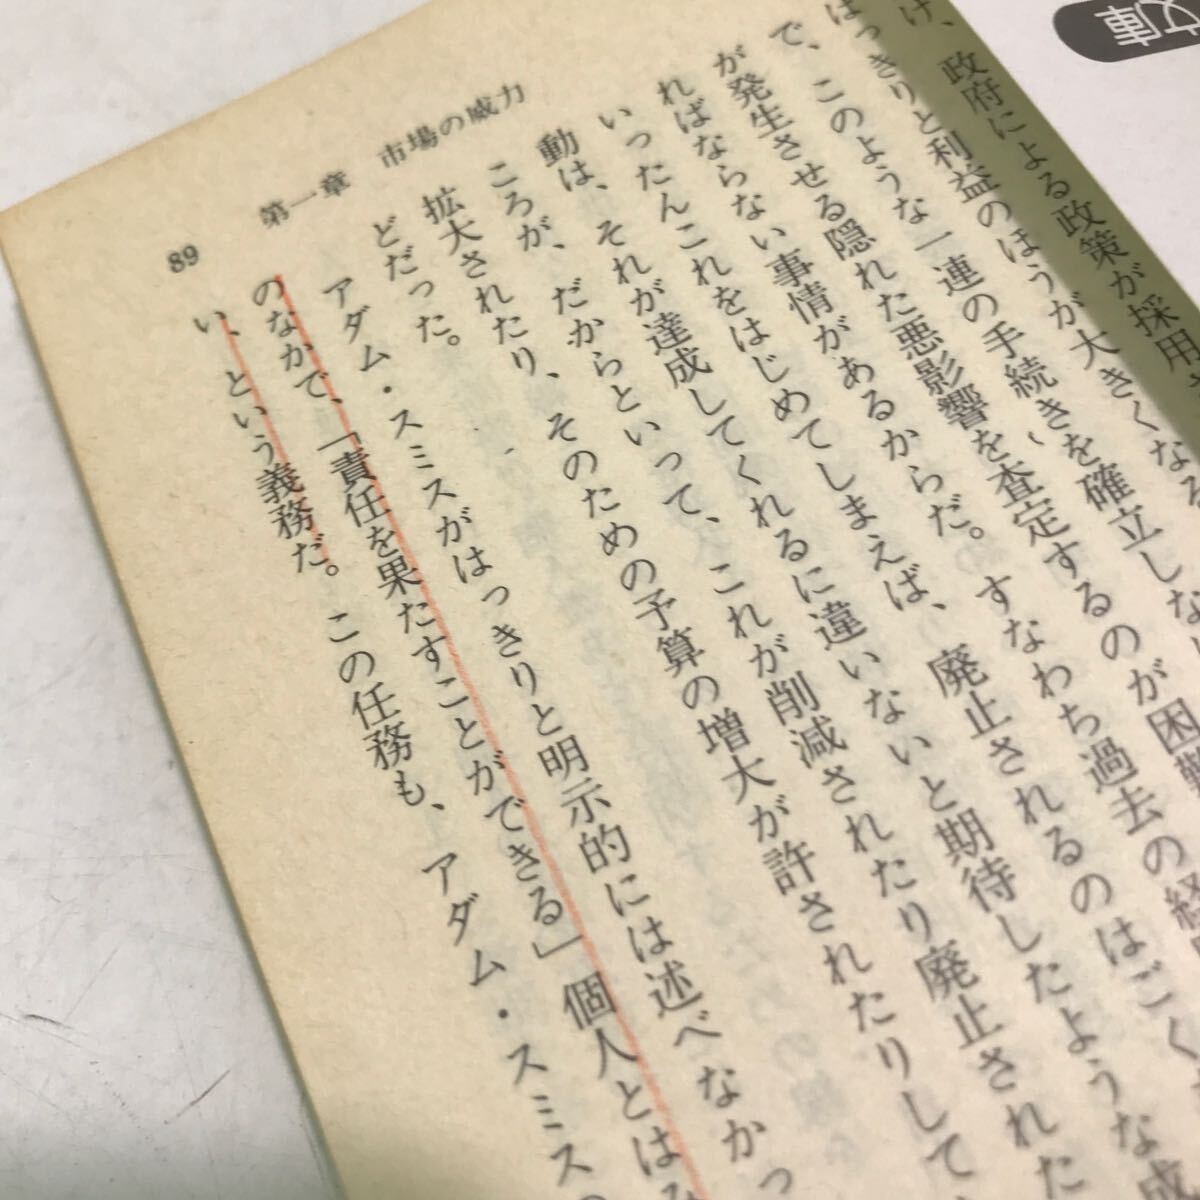 文庫
け、政府による政策が採用さ
はっきりと利益のほうが大きくなる
で、このような一連の手続きを確立しな
が発生させる隠れた悪影響を査定するのが困難
ればならない事情があるからだ。すなわち過去の経
いったんこれをはじめてしまえば、廃止されるのはごく
動は、それが達成してくれるに違いないと期待したような成
ころが、だからといって、これが削減されたり廃止された
拡大されたり、そのための予算の増大が許されたりして
どだった。
アダム・スミスがはっきりと明示的には述べなかっ
のなかで、「責任を果たすことができる」個人とはみ
い、という義務だ。この任務も、アダム・スミスの
第一章 市場の威力
89